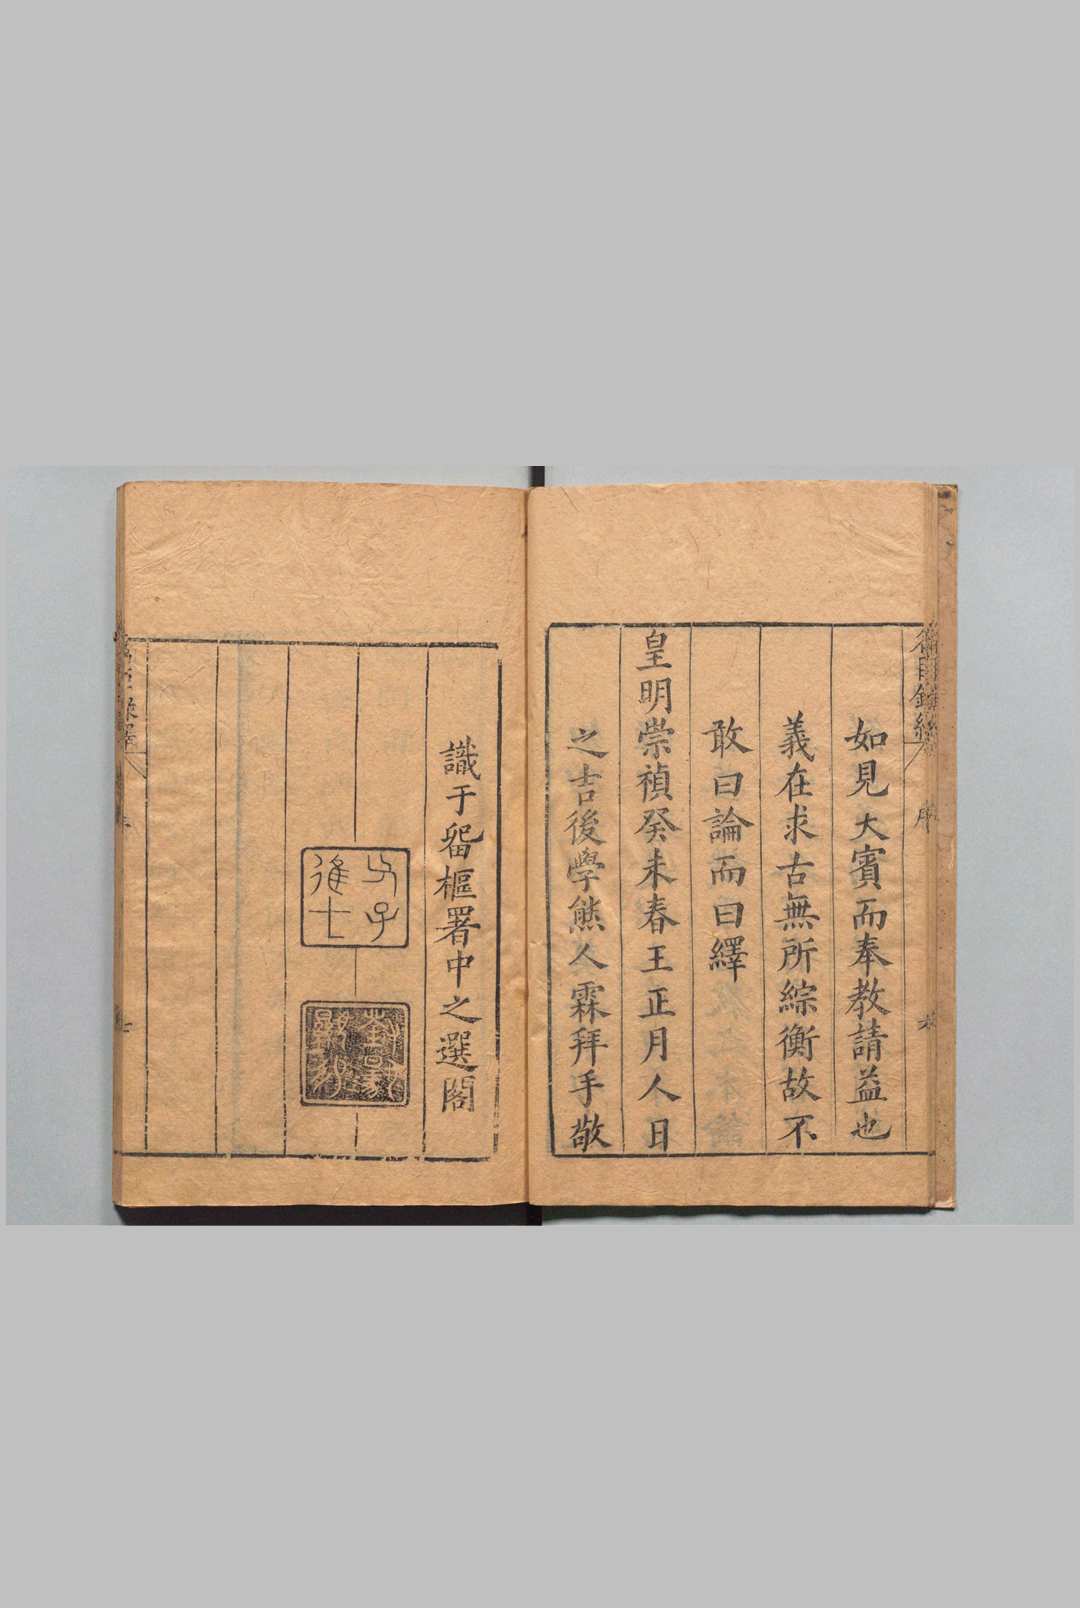 如見大賓而奉教請益也
義在求古無所綜衡故不
敢曰論而曰繹
皇明崇禎癸未春王正月人日
之吉後學熊人霖拜手敬
識于畱樞署中之選閣
進士